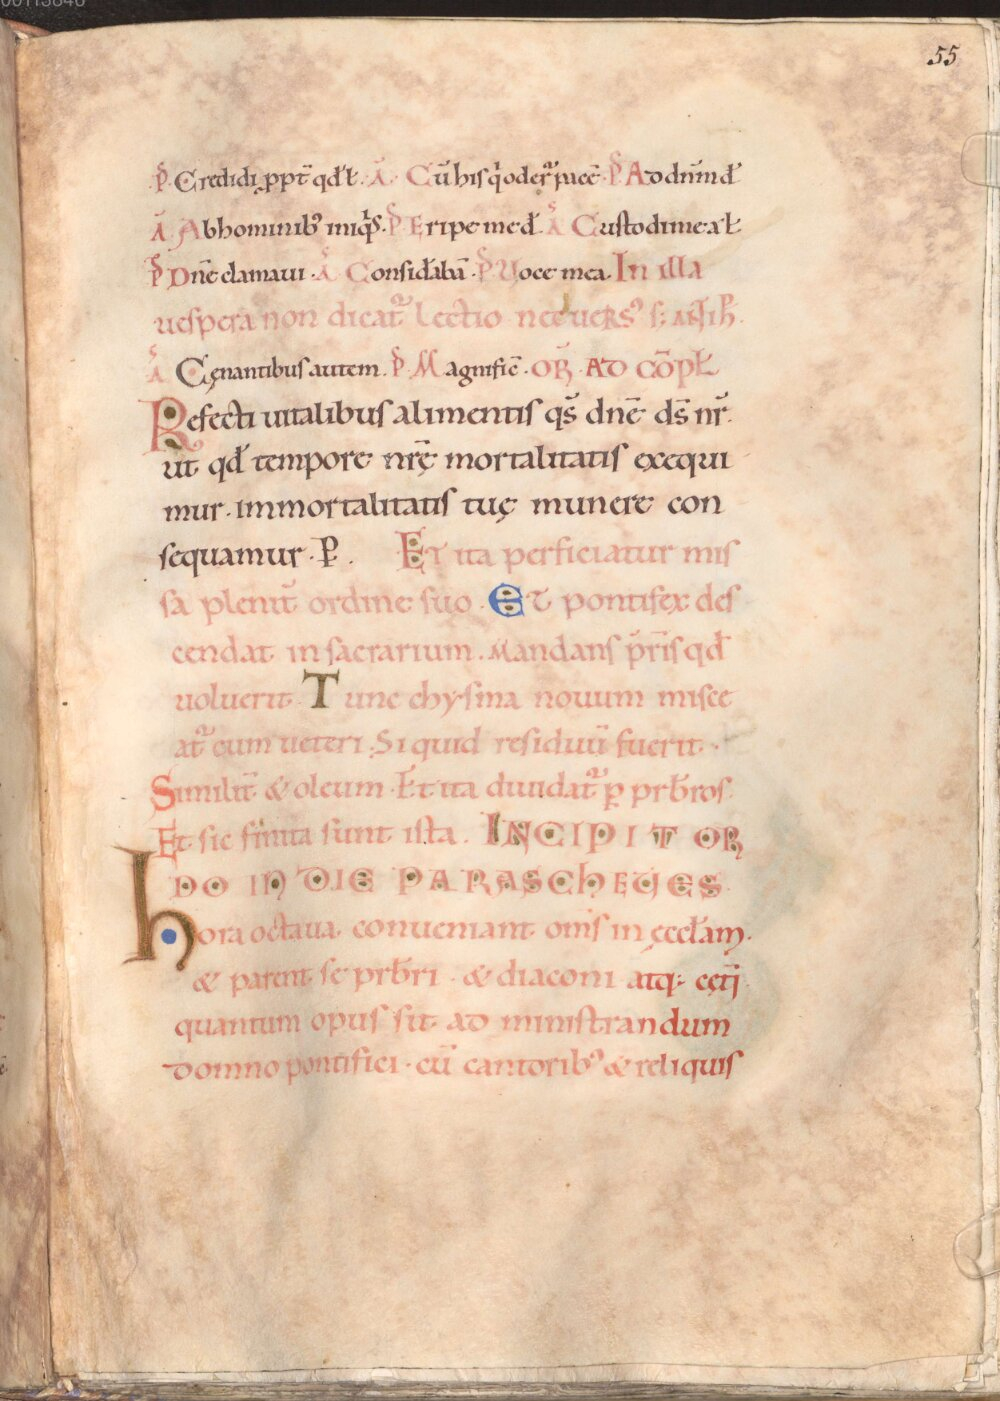 55
P̄. Credidi ꝓpt̄ qd̄ ł. Ā. Cū his q̇ oder̄ pacē P̄ Ad dn̄m d̄
Ā Ab hominib; iniq̇s. P̄ Eripe me d̄. Ā Custodi me a ł
P̄ Dn̄e clamaui. Ā Considābā. P̄ Uoce mea. In illa
uespera non dicat᷑ lectio nec uers᷒
Ā Cęnantibus autem. P̄ Magnific̄. OR̄ AD CŌPŁ
Refecti uitalibus alimentis qs̄ dn̄e ds̄ nr̄.
ut qd̄ tempore nr̄ę mortalitatis exequi
mur. immortalitatis tuę munere con
sequamur. P̄. Et ita perficiatur mis
sa plenit̄ ordine suo. Et pontifex des
cendat in sacrarium. Mandans p̄ris qd̄
uoluerit. Tunc chysma nouum misce
at᷑ cum ueteri. Si quid residuū fuerit.
Similit̄ & oleum. Et ita diuidat᷑ ꝑ prb̄ros.
Et sic finita sunt ista. INCIPIT OR
DO IN DIE PARASCHEUES
hora octaua conueniant om̄s in ęccl̄am.
& parent se prb̄ri. & diaconi atq; cęt̄i
quantum opus sit ad ministrandum
domno pontifici. cū cantorib; & reliquis